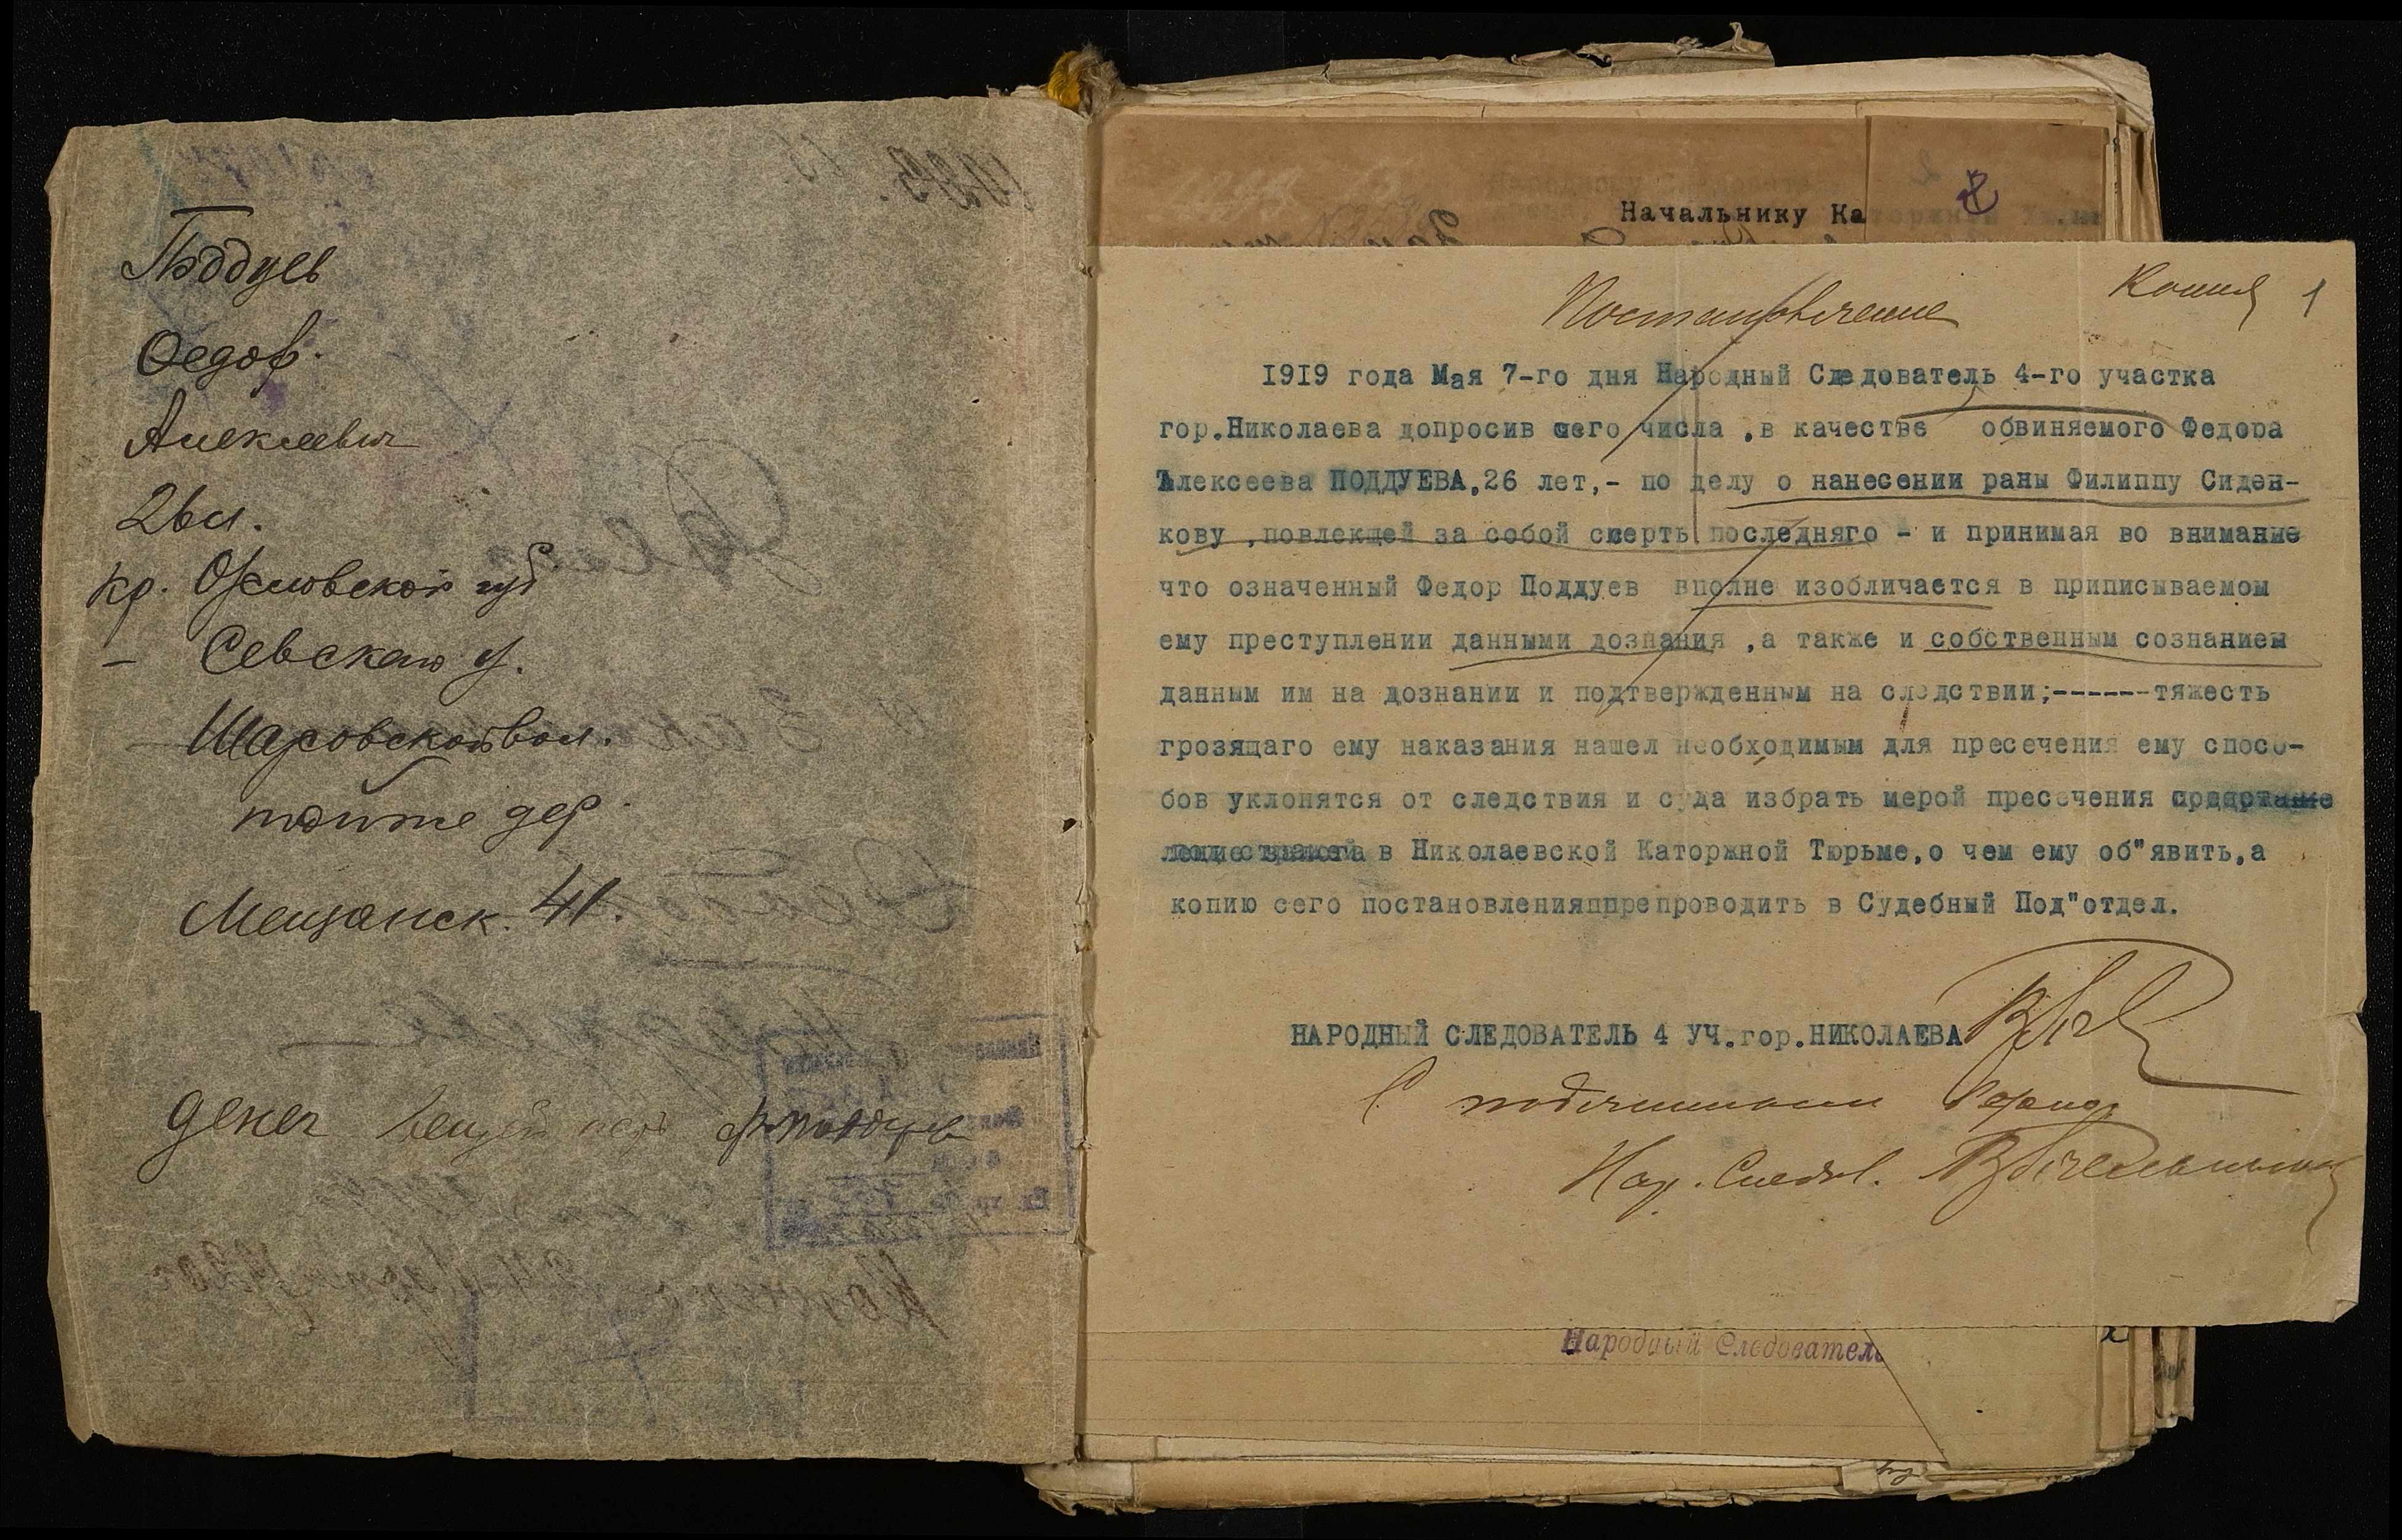 Поддуев
Федор.
Алексеевич
26 л.
кр. Орловской губ
— Севскаго у.
— Шаровской вол.
тойже дер.
Мещанск. 41.
денег вещей нет Ф Поддуев
Начальнику Ка
Постановление
Копия 1
1919 года Мая 7-го дня Народный Следователь 4-го участка
гор.Николаева допросив сего числа ,в качестве обвиняемого Федора
Алексеева ПОДДУЕВА,26 лет,- по делу о нанесении раны Филиппу Сиден-
кову ,повлекщей за собой смерть последняго - и принимая во внимание
что означенный Федор Поддуев вполне изобличается в приписываемом
ему преступлении данными дознания ,а также и собственным сознанием
данным им на дознании и подтвержденным на следствии;------тяжесть
грозящаго ему наказания нашел необходимым для пресечения ему спосо-
бов уклонятся от следствия и суда избрать мерой пресечения
в Николаевской Каторжной Тюрьме,о чем ему об"явить,а
копию сего постановленияппрепроводить в Судебный Под"отдел.
НАРОДНЫЙ СЛЕДОВАТЕЛЬ 4 УЧ.гор.НИКОЛАЕВА
С подлинным верно
Нар. Следов.
Народный Следователь